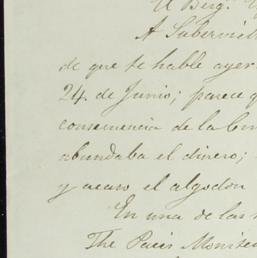 A
de que te hable ayer
24. de Junio; parece q
consecuencia de la
abundaba el dinero;
y acaso el algodon
En una de las
The Paris Monite